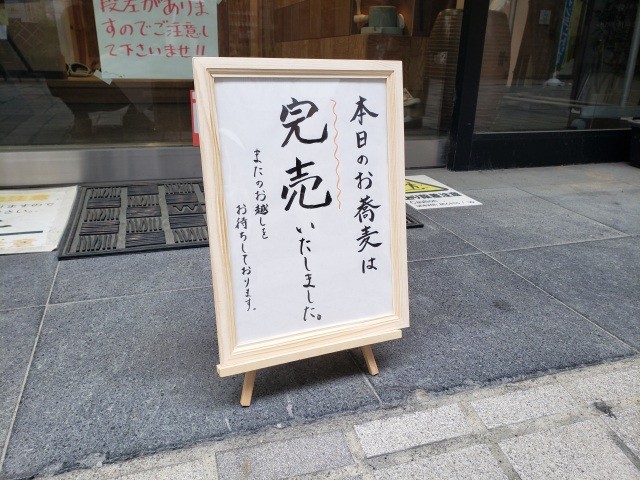 段差がありま
すのでご注意し
て下さいませ!!
本日のお蕎麦は
完売いたしました。
またのお越しを
お待ちしております。